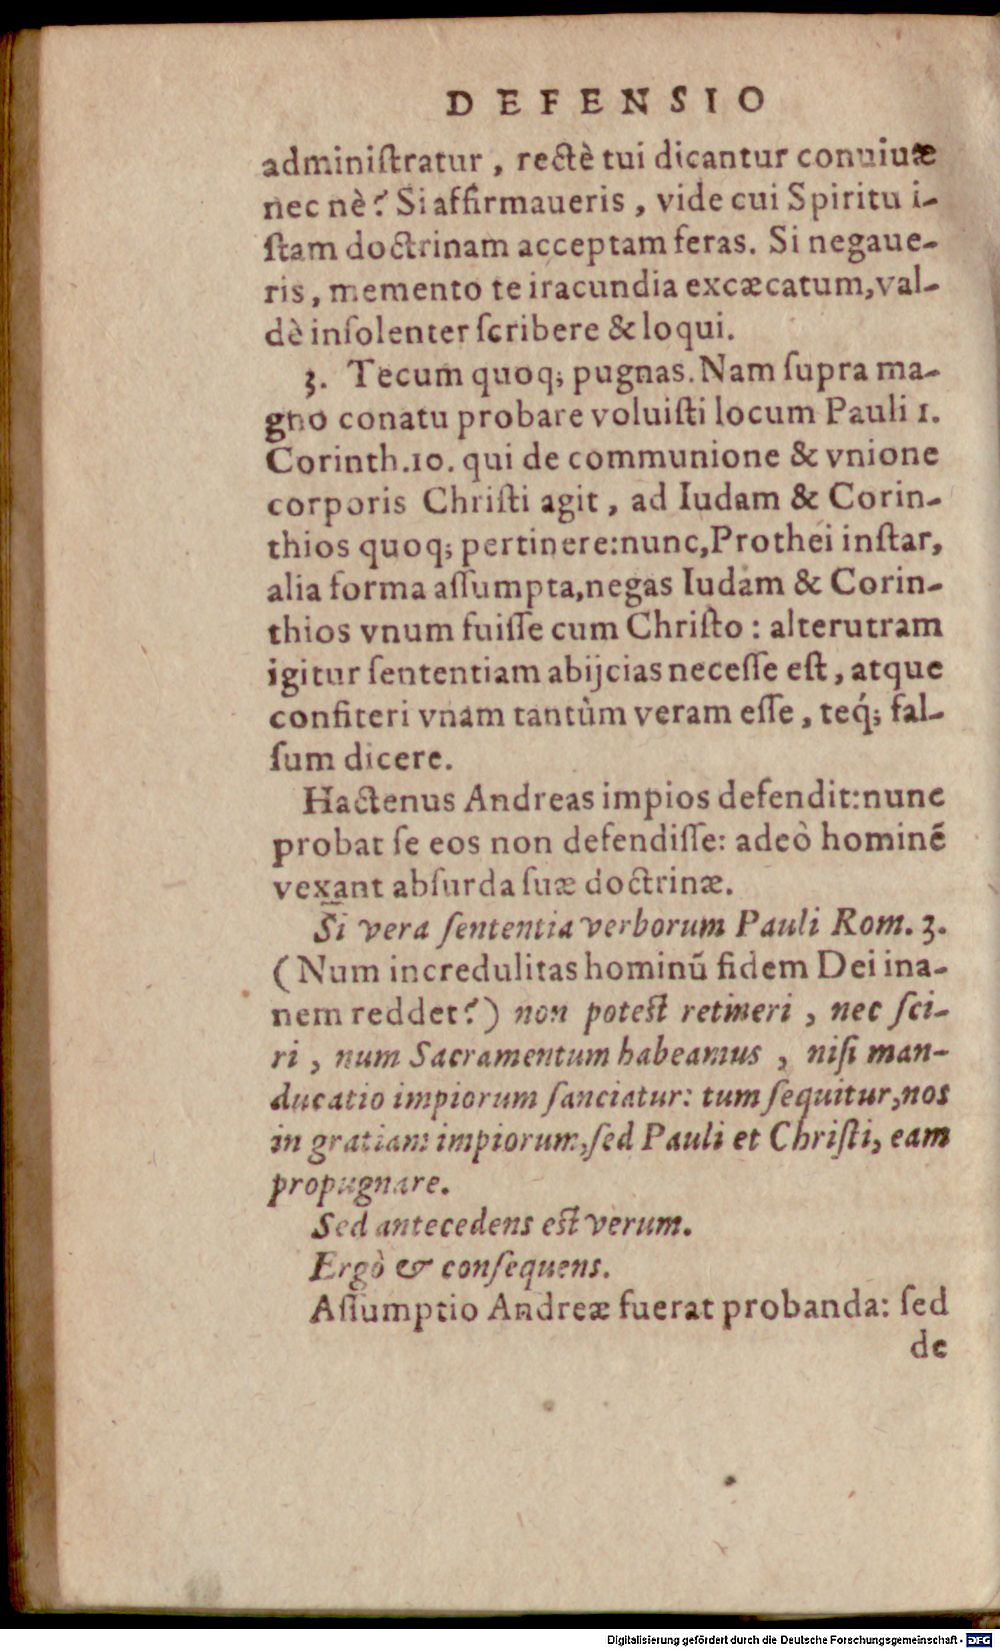 DEFENSIO
adminiſtratur , rectè tui dicantur conuiuæ
nec nè? Si affirmaueris , vide cui Spiritu i-
ſtam doctrinam acceptam feras. Si negaue-
ris , memento te iracundia excæcatum,val-
dè inſolenter ſcribere & loqui.
3. Tecum quoq; pugnas. Nam ſupra ma-
gno conatu probare voluiſti locum Pauli 1.
Corinth.10. qui de communione & vnione
corporis Chriſti agit , ad Iudam & Corin-
thios quoq; pertinere:nunc,Prothei inſtar,
alia forma aſſumpta,negas Iudam & Corin-
thios vnum fuiſſe cum Chriſto : alterutram
igitur ſententiam abijcias neceſſe eſt , atque
confiteri vnam tantùm veram eſſe , teq́; fal-
ſum dicere.
Hactenus Andreas impios defendit:nunc
probat ſe eos non defendiſſe: adeò hominẽ
vexant abſurda ſuæ doctrinæ.
Si vera ſententia verborum Pauli Rom. 3.
(Num incredulitas hominũ fidem Dei ina-
nem reddet?) non poteſt retineri , nec ſci-
ri , num Sacramentum habeamus , niſi man-
ducatio impiorum ſanciatur: tum ſequitur,nos
in gratiam impiorum,ſed Pauli et Chriſti, eam
propugnare.
Sed antecedens eſt verum.
Ergò & conſequens.
Aſſumptio Andreæ fuerat probanda: ſed
de
Digitalisierung gefördert durch die Deutsche Forschungsgemeinschaft - DFG